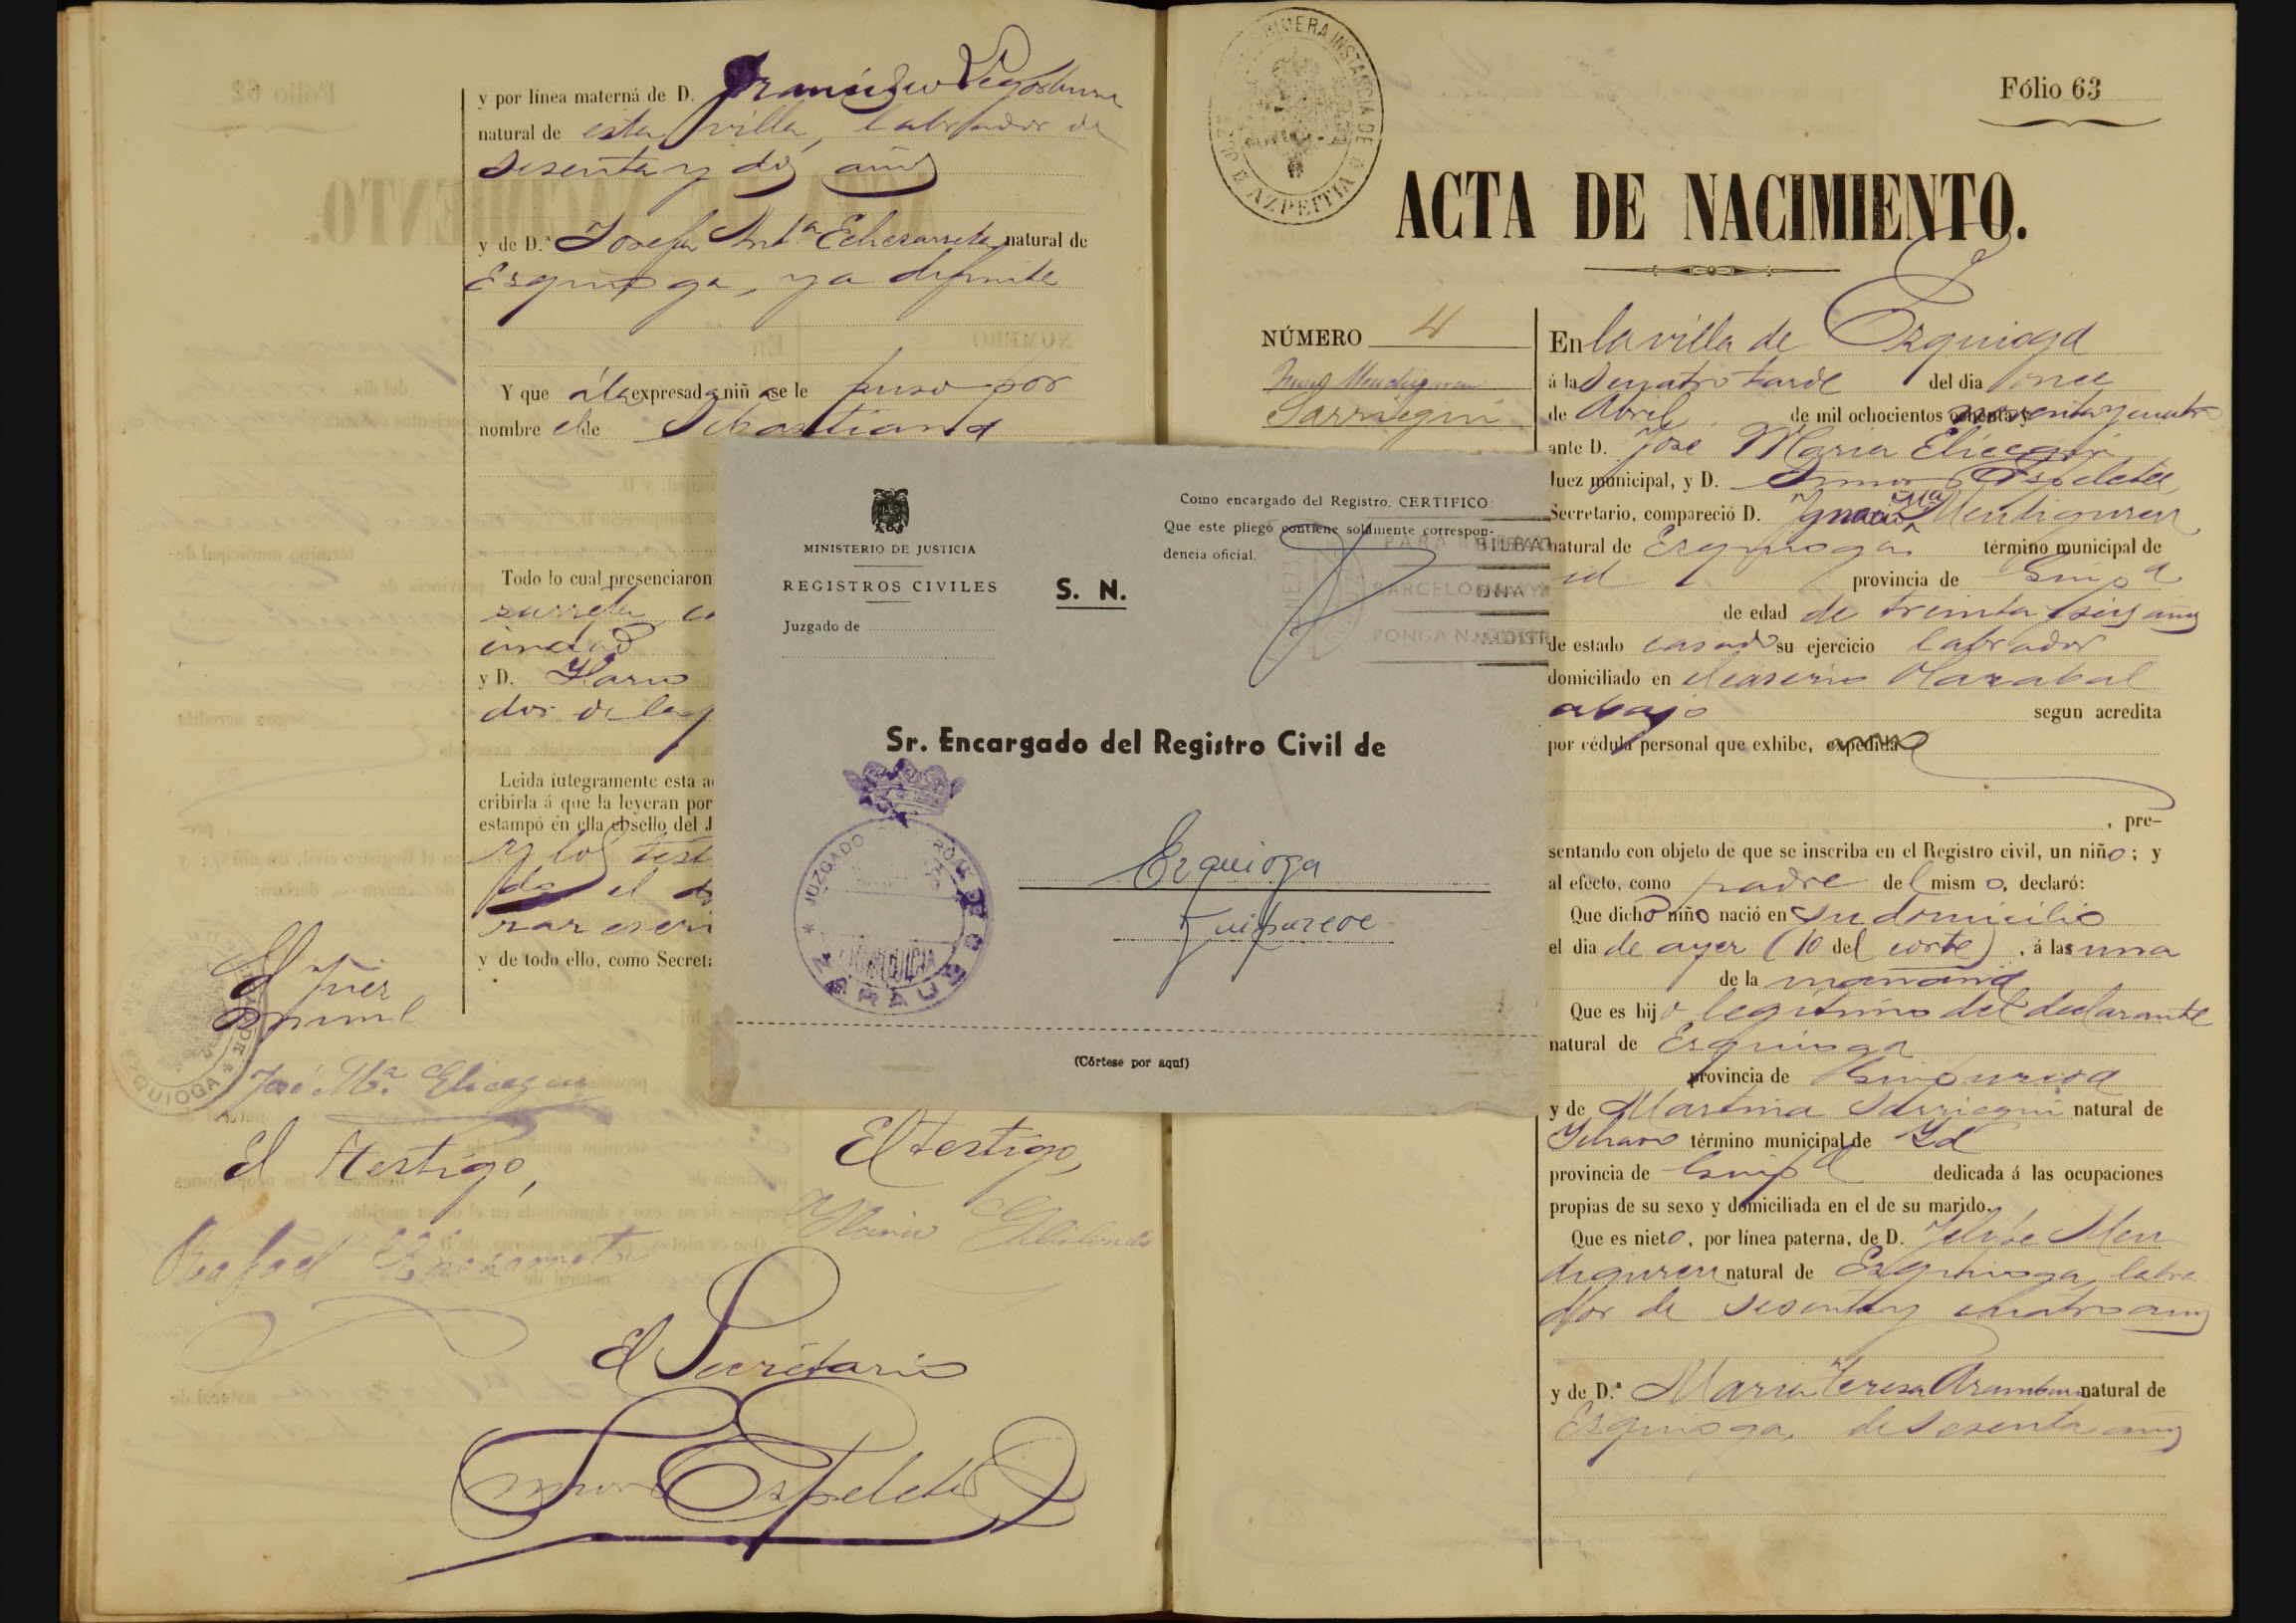 y por línea materna de D. Francisco Legorburu
natural de esta villa, labrador de
sesenta y dos años
y de D.ª Josefa Ant.ª Echezarreta natural de
Ezquioga, ya difunta
Y que á la expresada niña se le puso por
nombre el de Sebastiana
Todo lo cual presenciaron
zarreta
y D. Ilario
dor de la
Leida íntegramente esta a
cribirla á que la leyeran por
estampó en ella el sello del J
y los test
el
rar
y de todo ello, como Secret
El Juez
EZQUIOGA
José M.ª Elicegui
El testigo,
El testigo,
Rafael Echezarreta
Ilario
El Secretario
Espeleta
MINISTERIO DE JUSTICIA
REGISTROS CIVILES
Juzgado de
S. N.
Como encargado del Registro, CERTIFICO:
Que este pliego contiene solamente correspon-
dencia oficial.
BILBAO
BARCELONA
PONGA
Sr. Encargado del Registro Civil de
JUZGADO
ZARAUZ
Ezquioga
Guipuzcoa
(Córtese por aquí)
PRIMERA INSTANCIA DE
AZPEITIA
Fólio 63
ACTA DE NACIMIENTO.
NÚMERO 4
Mendiguren
Sarriegui
En la villa de Ezquioga
á las cuatro tarde del dia once
de Abril de mil ochocientos ochenta y noventa y cuatro
ante D. José Maria Elicegui
Juez municipal, y D. Espeleta
Secretario, compareció D. Ignacio Mª Mendiguren
natural de Ezquioga término municipal de
id provincia de Guip.a
de edad de treinta y seis años
de estado casado su ejercicio labrador
domiciliado en el caserio
abajo segun acredita
por cédula personal que exhibe, expedida
, pre-
sentando con objeto de que se inscriba en el Registro civil, un niño; y
al efecto, como padre del mismo, declaró:
Que dicho niño nació en su domicilio
el dia de ayer (10 del corte), á las una
de la mañana
Que es hijo legítimo del declarante
natural de Ezquioga
provincia de Guipuzcoa
y de Martina Sarriegui natural de
Ichaso término municipal de Id
provincia de Guip.a dedicada á las ocupaciones
propias de su sexo y domiciliada en el de su marido.
Que es nieto, por línea paterna, de D. Felipe Men
diguren natural de Ezquioga, labra
dor de sesenta y cuatro años
y de D.ª Maria Teresa Aramburu natural de
Ezquioga, de sesenta años